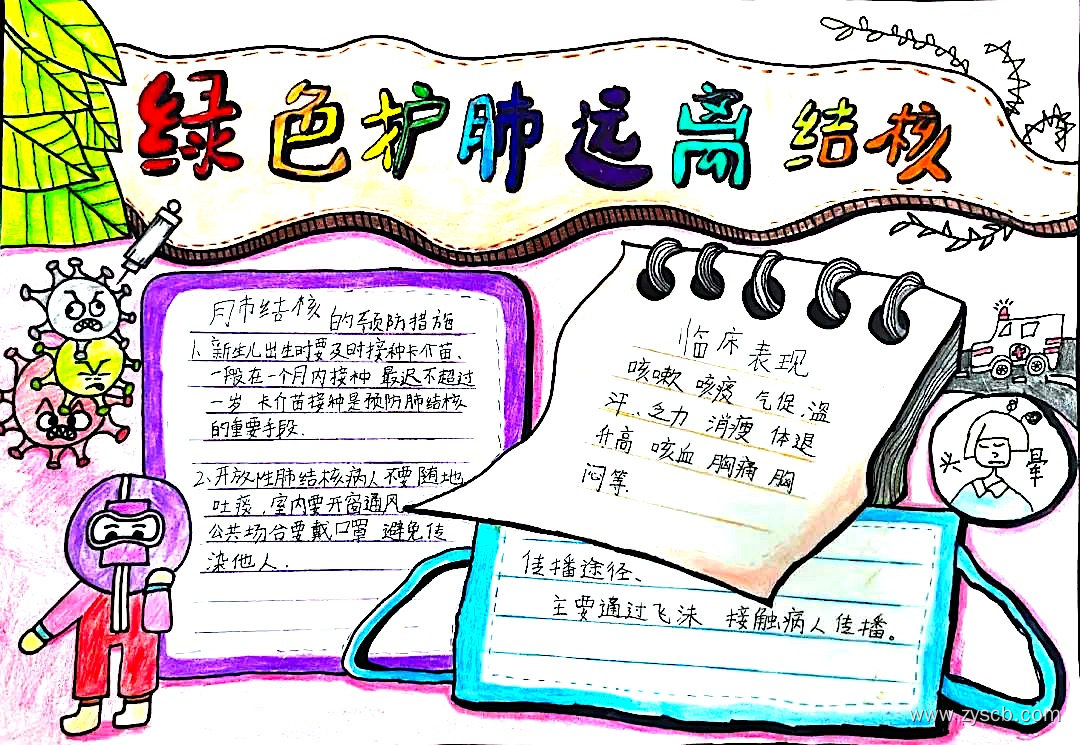 绿色护肺远离结核
肺结核的预防措施
1、新生儿出生时要及时接种卡介苗、
一般在一个月内接种 最迟不超过
一岁 卡介苗接种是预防肺结核
的重要手段.
2、开放性肺结核病人不要随地
吐痰,室内要开窗通风
公共场合要戴口罩 避免传
染他人.
临床表现
咳嗽 咳痰 气促、盗
汗、乏力 消瘦 体退
升高 咳血 胸痛 胸
闷等.
头晕
传播途径、
主要通过飞沫 接触病人传播。
www.zyscb.com